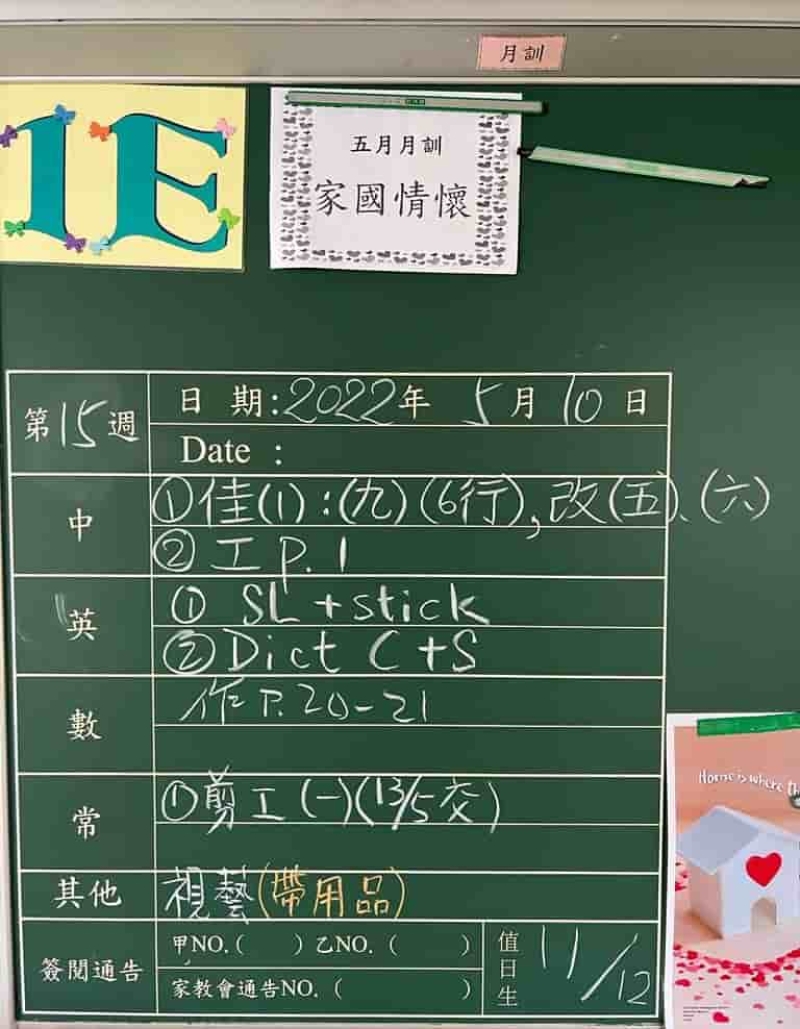 月訓
1E
五月月訓
家國情懷
第15週
日 期:2022年 5月 10日
Date :
中
①佳(1):(九)(6行),改(五)、(六)
② 工 p. 1
英
① SL + stick
② Dict C + S
數
作 P. 20-21
常
①剪工(一)(13/5交)
其他
視藝(帶用品)
簽閱通告
甲NO.( ) 乙NO.( )
家教會通告NO.( )
值日生
11/12
Home is where th